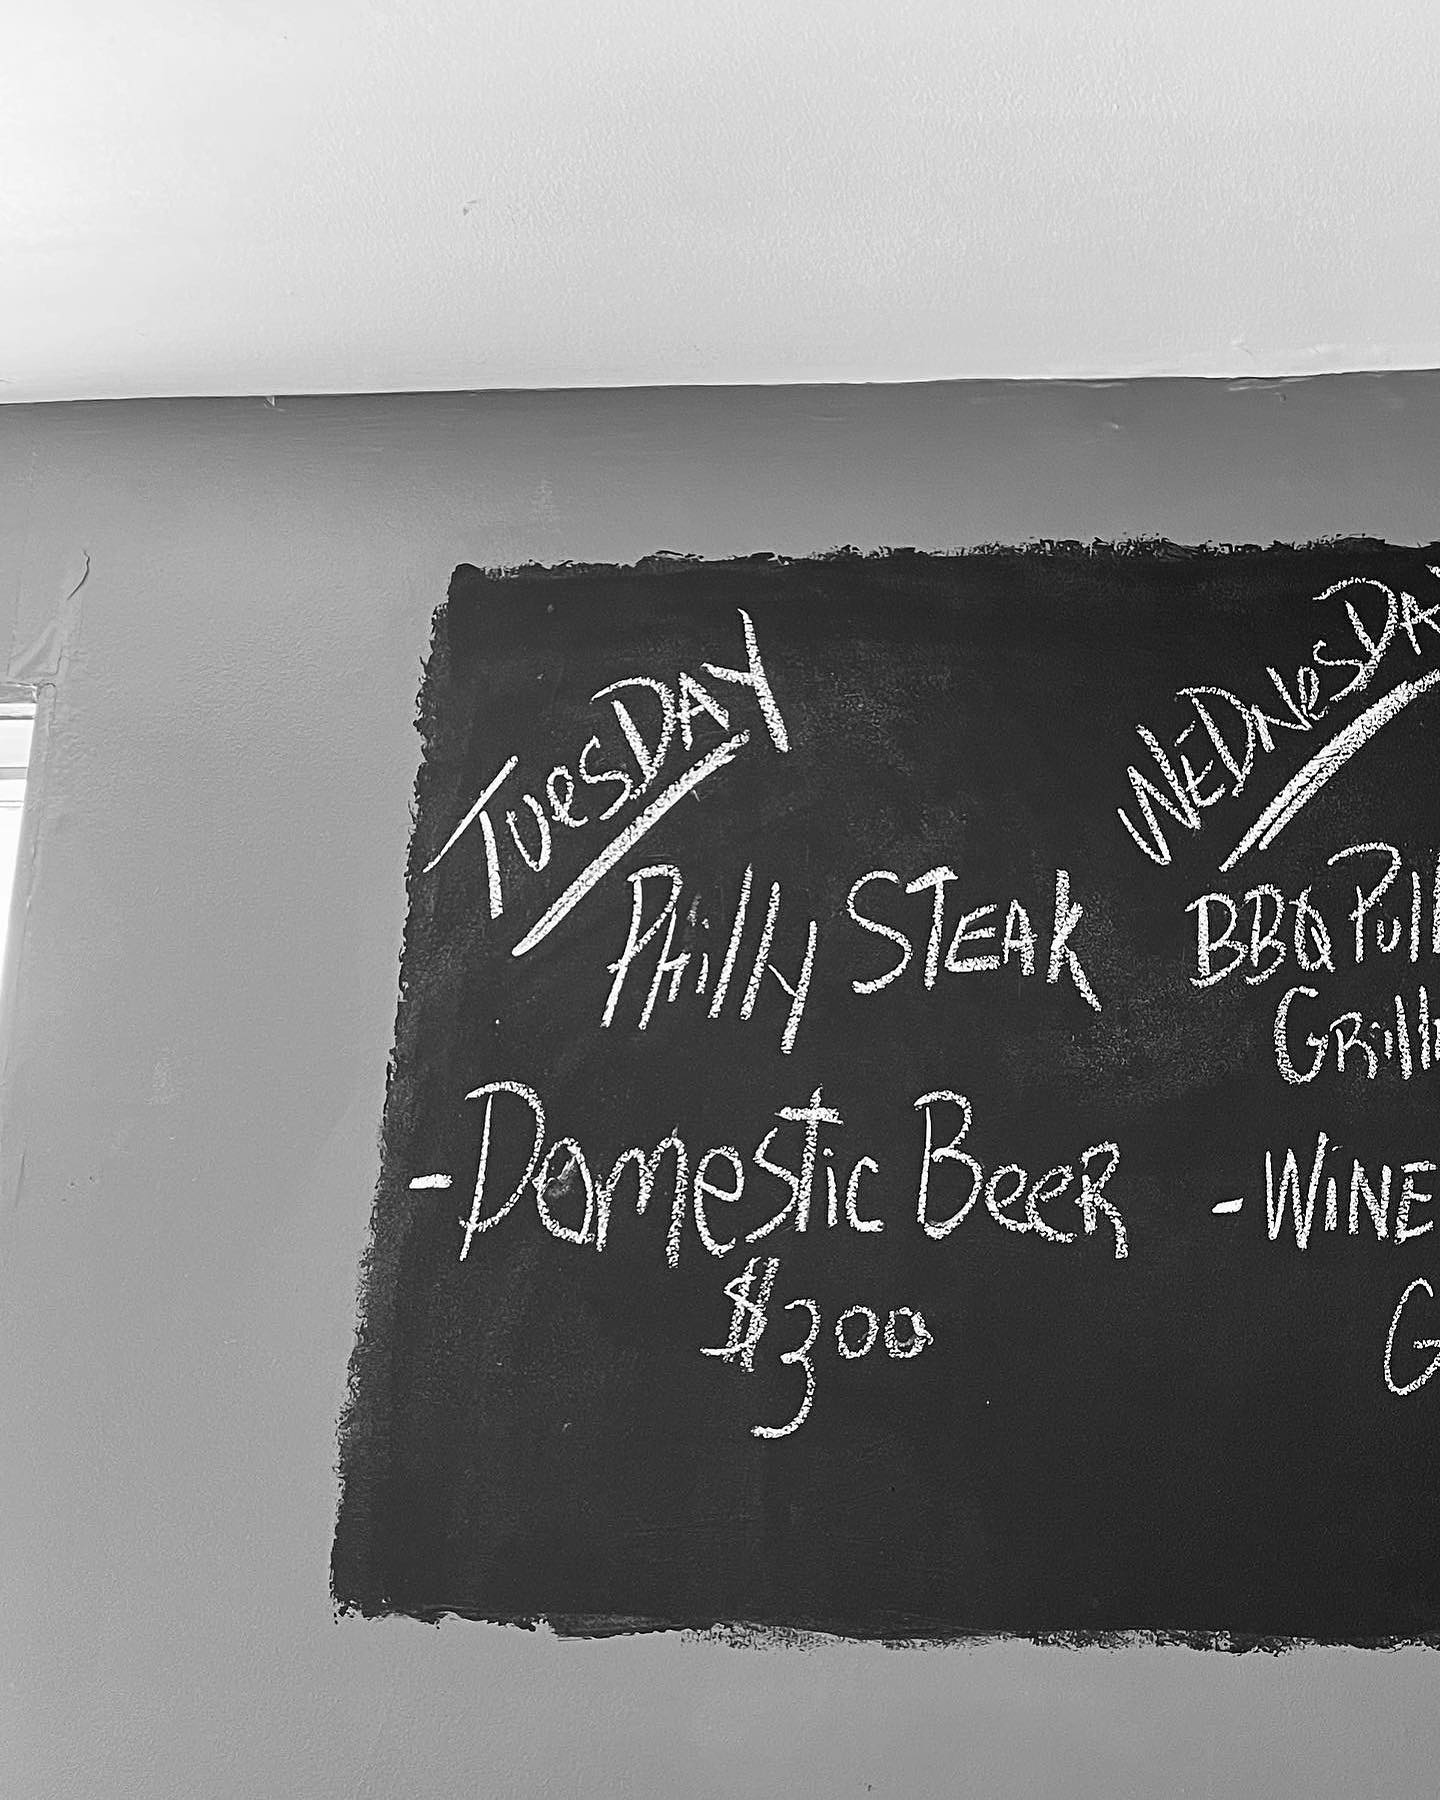 TuesDAY
Philly STEAK
- Domestic Beer
$3.00
WEDNesDAY
BBQ
- WiNE